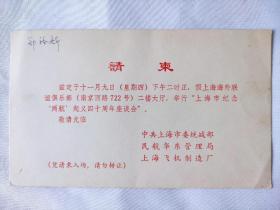 請柬
兹定于十一月九日（星期四）下午二时正，假上海海外联
谊俱乐部（南京西路722号）二楼大厅，举行“上海市纪念
‘两航’起义四十周年座谈会”。
敬请光临
中共上海市委统战部
民航华东管理局
上海飞机制造厂
（凭请柬入场，请勿转让）